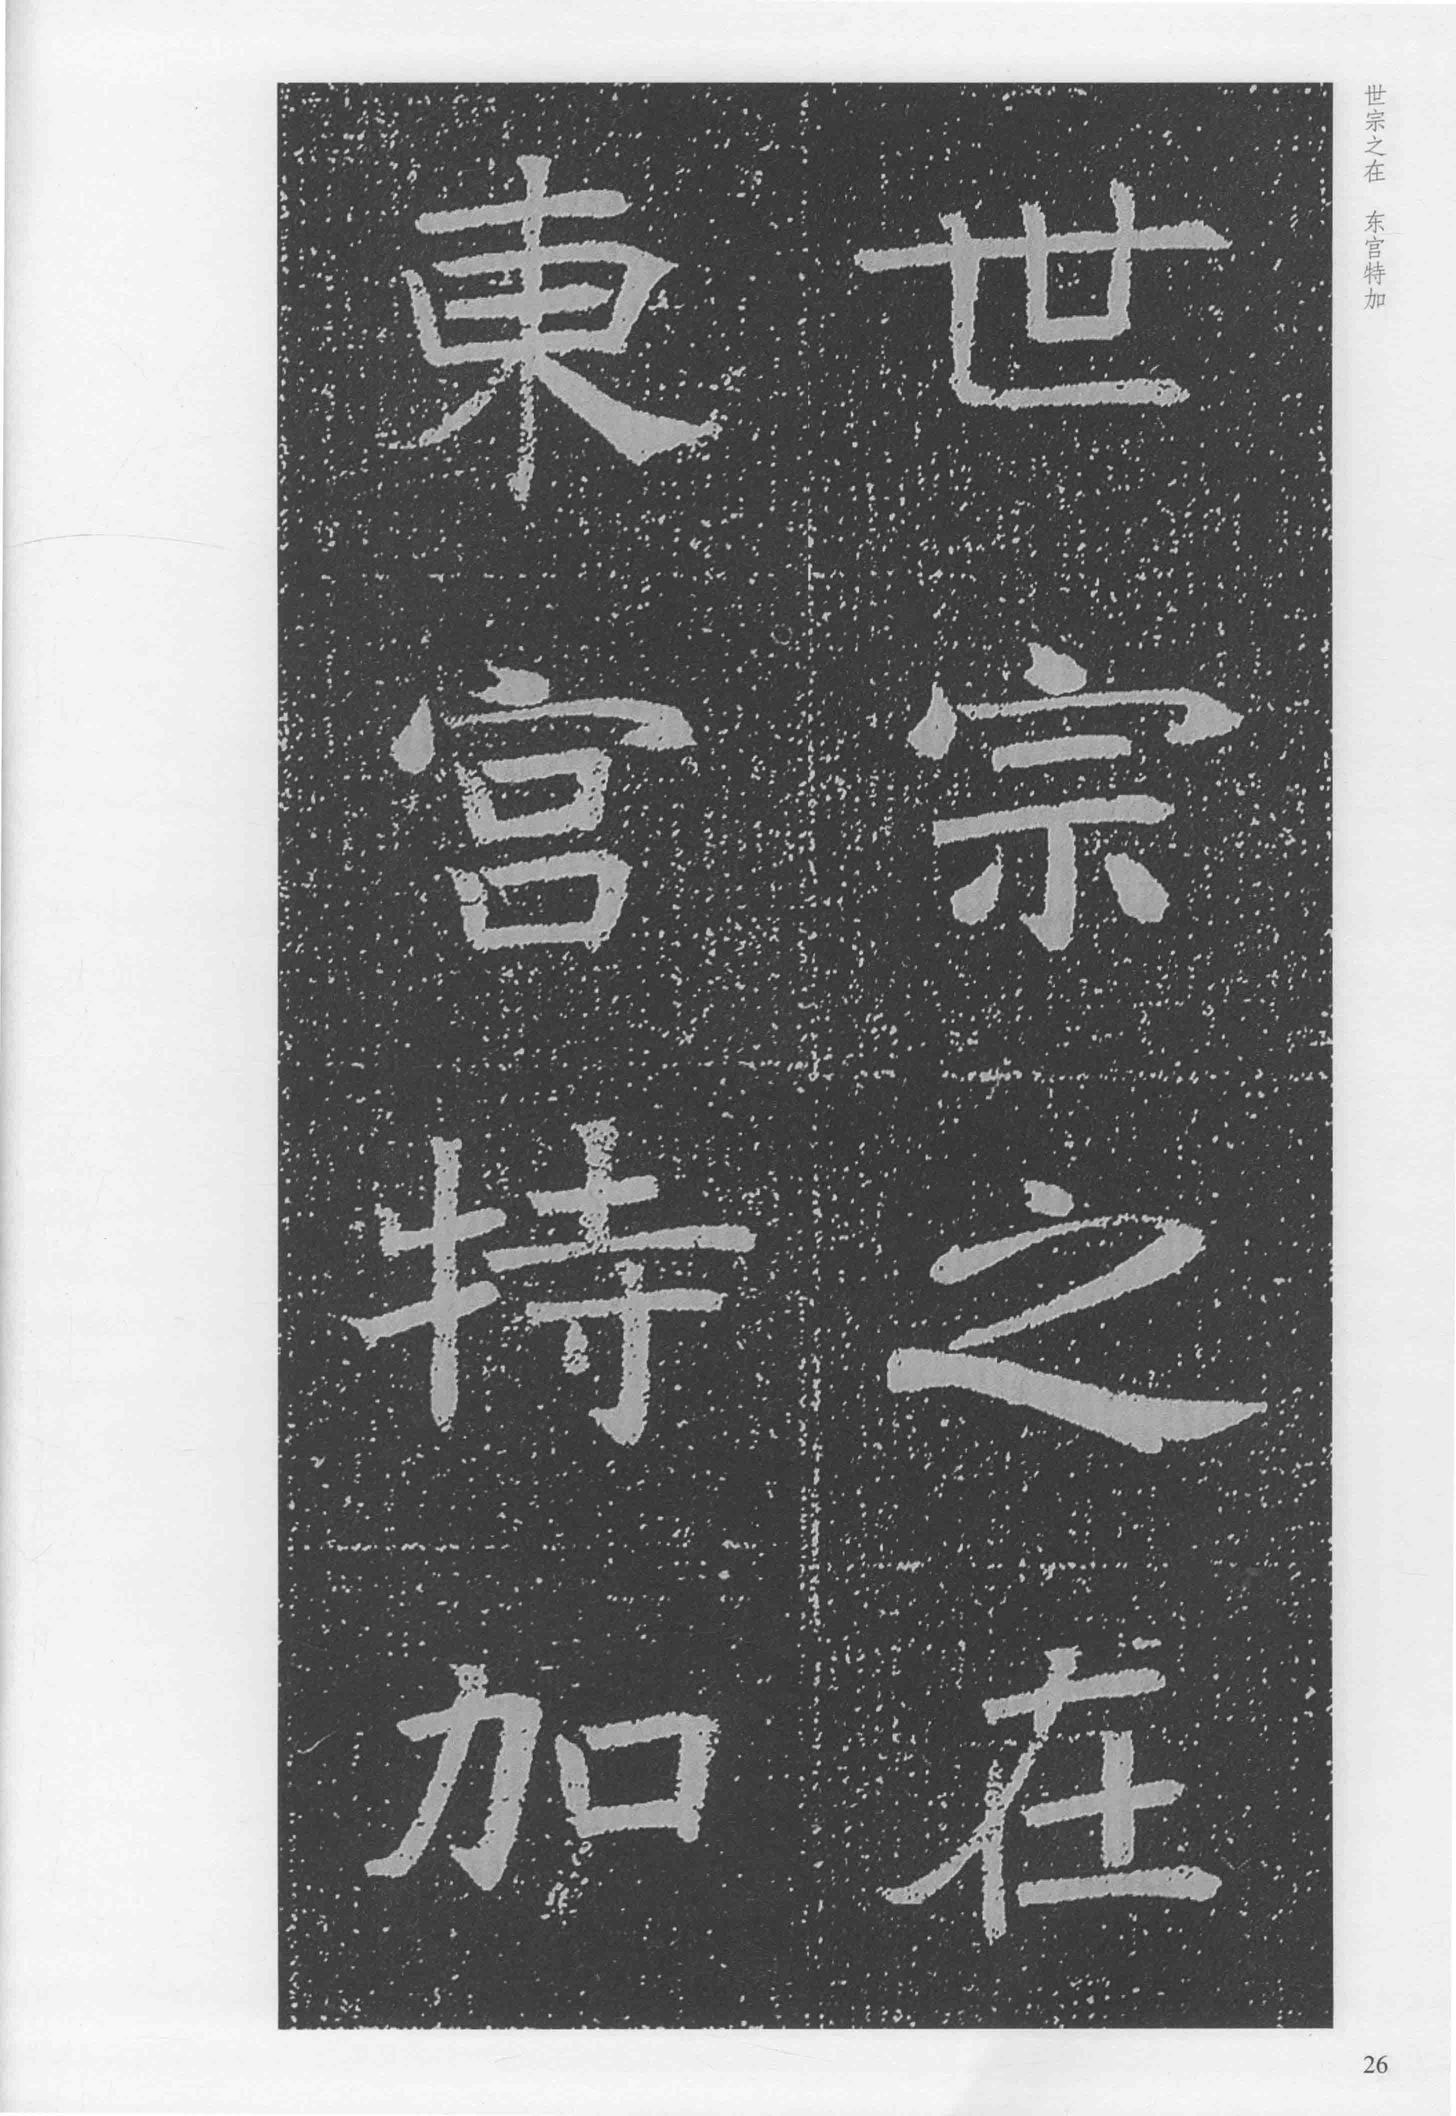 世宗之在 东宫特加
世宗之在
東宮特加
26